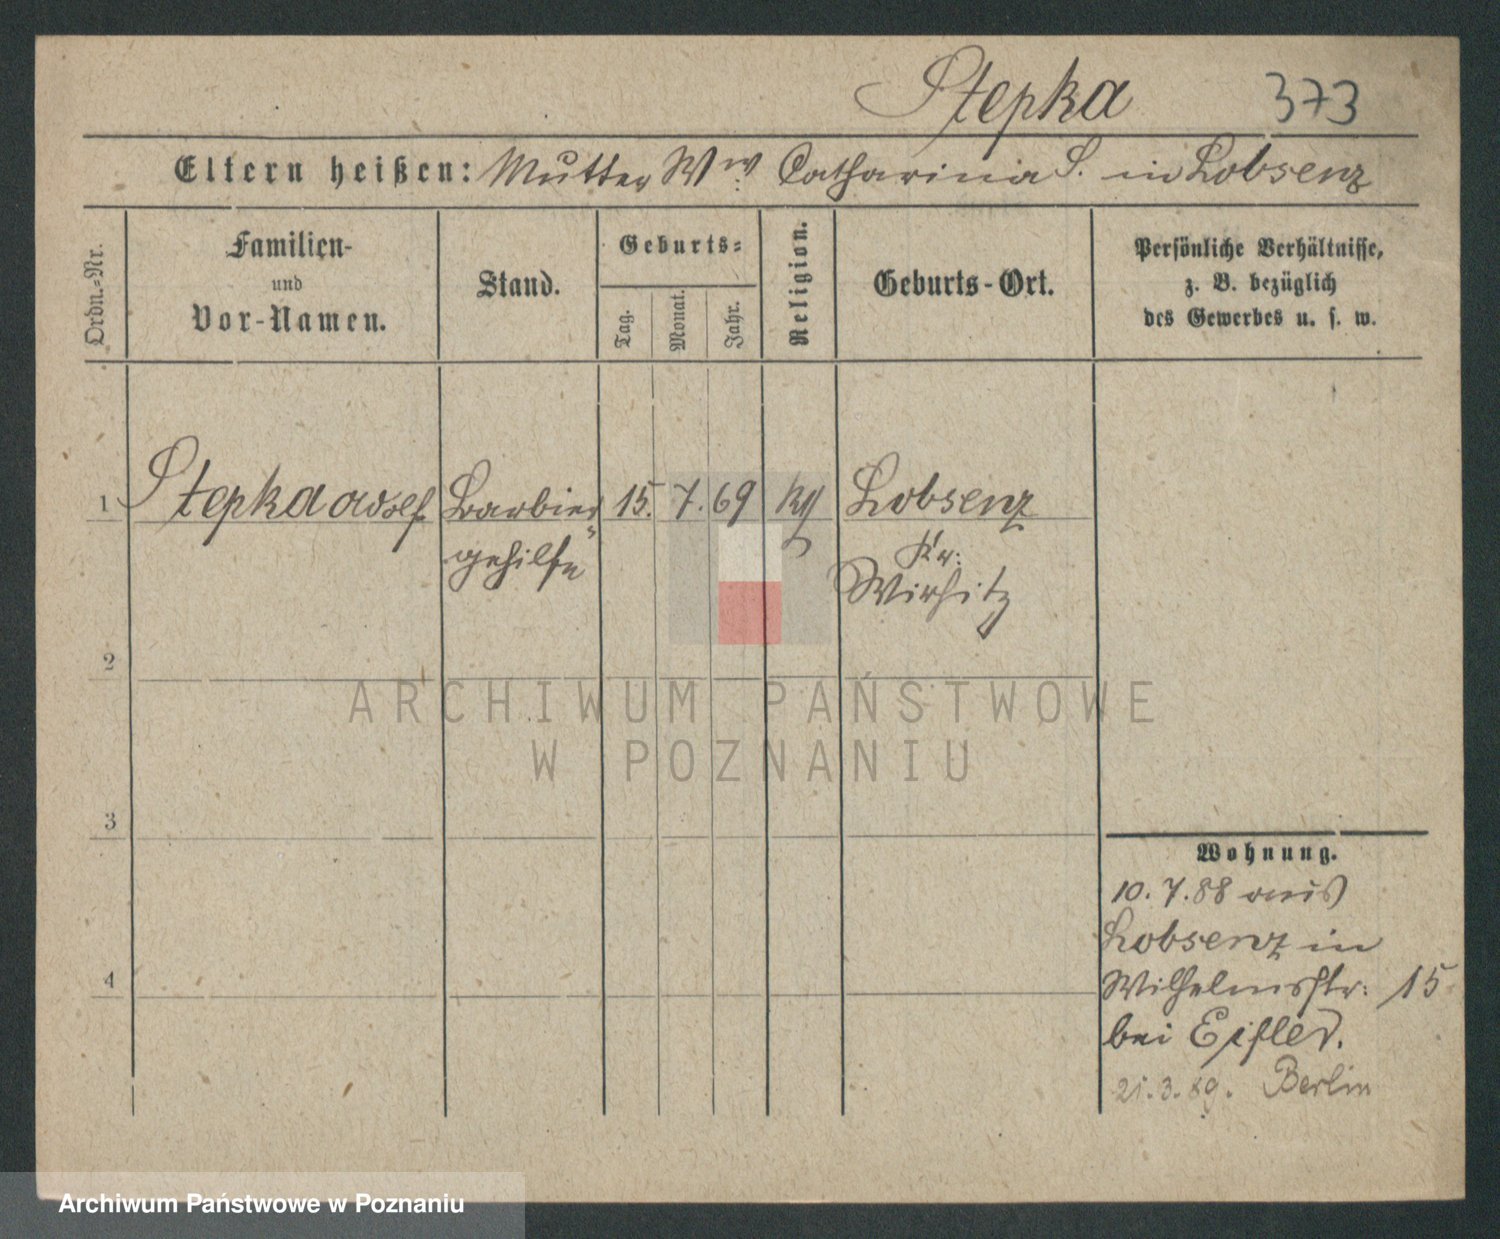 Stepka 373
Eltern heißen: Mutter Ww Catharina S. in Lobsenz
Ordn.-Nr.
Familien-
und
Vor-Namen.
Stand.
Geburts-
Tag.
Monat.
Jahr.
Religion.
Geburts-Ort.
Persönliche Verhältnisse,
z. B. bezüglich
des Gewerbes u. s. w.
1 Stepka Adolf Barbier 15. 7. 69 Lobsenz
gehilfe
Kr:
Wirsitz
2
3
4
Wohnung.
10. 7. 88 aus
Lobsenz in
Wilhelmsstr: 15
bei
21. 3. 89. Berlin
ARCHIWUM PAŃSTWOWE
W POZNANIU
Archiwum Państwowe w Poznaniu